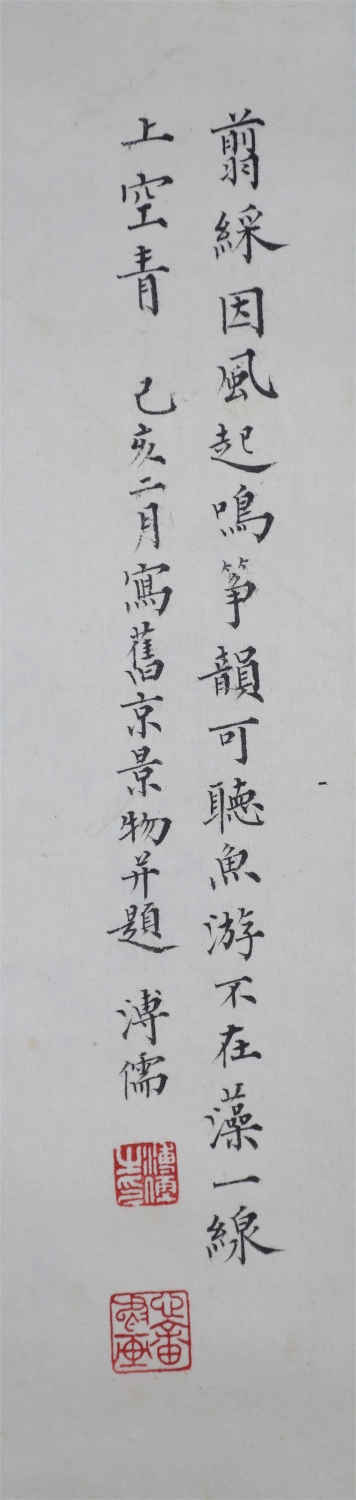 翦綵因風起鳴箏韻可聽魚游不在藻一線
上空青　己亥二月寫舊京景物并題　溥儒
溥儒之印